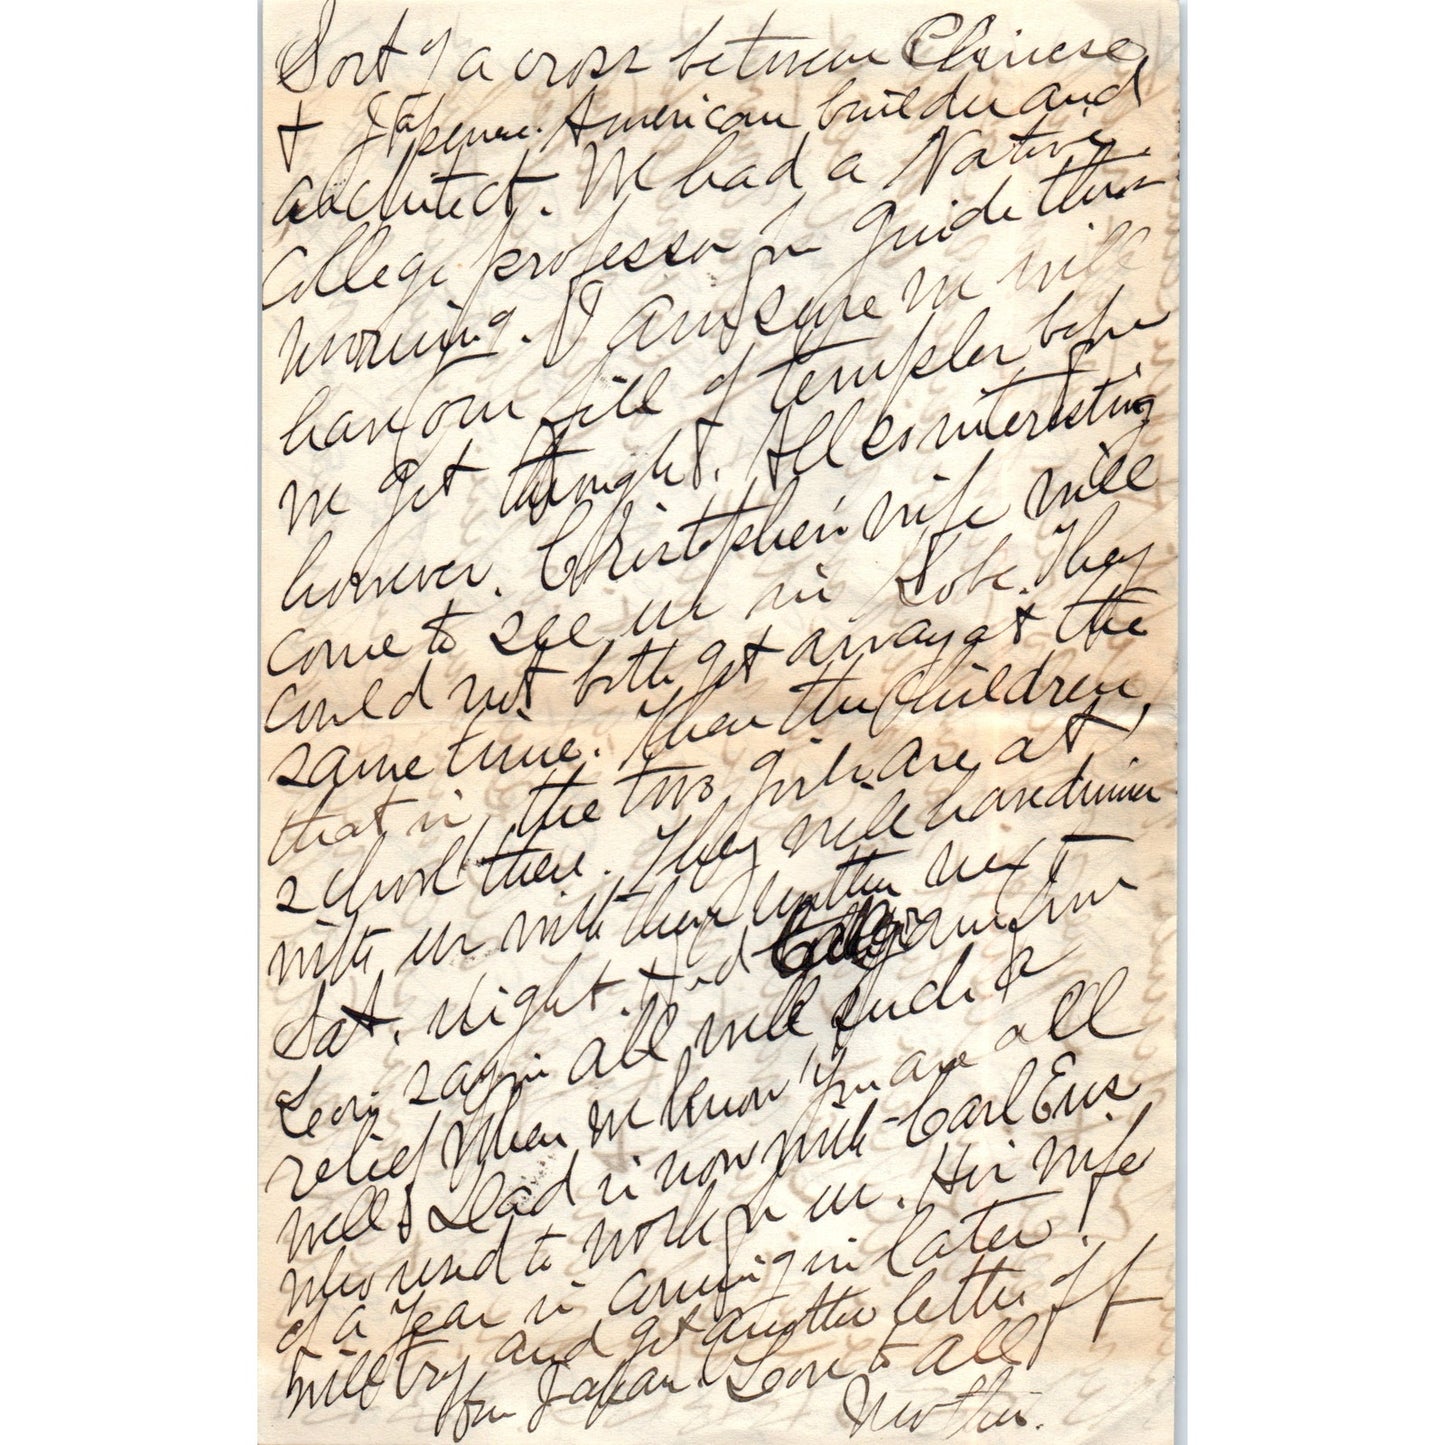 Sort of a cross between Chinese
& Japenese. American builder and
architect. We had a Native
College professor for guide this
morning. I am sure we will
have our fill of temples before
we get through. All so interesting
however. Christophers' wife will
come to see us in Kobe. They
could not both get away at the
same time. Then the children,
that is, the two girls are at
school there. They will have dinner
with us with their brother next
Sat. night. Had from
Leon saying all well such a
relief when we know you are all
well. Dad is now with Carl
who used to work for us. His wife
of a year is coming in later.
Will try and get another letter off
from Japan. Love to all
Mother.